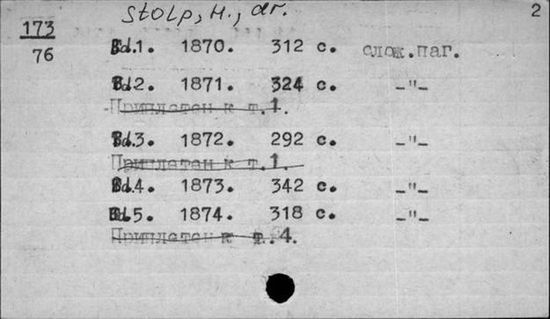 Stolp, H., dr.
2
173
76
Bd.1. 1870. 312 с. слож.паг.
Bd.2. 1871. 324 с. -"-
Приплетен к т.1.
Bd.3. 1872. 292 с. -"-
Приплетен к т.1.
Bd.4. 1873. 342 с. -"-
Bd.5. 1874. 318 с. -"-
Приплетен к т.4.